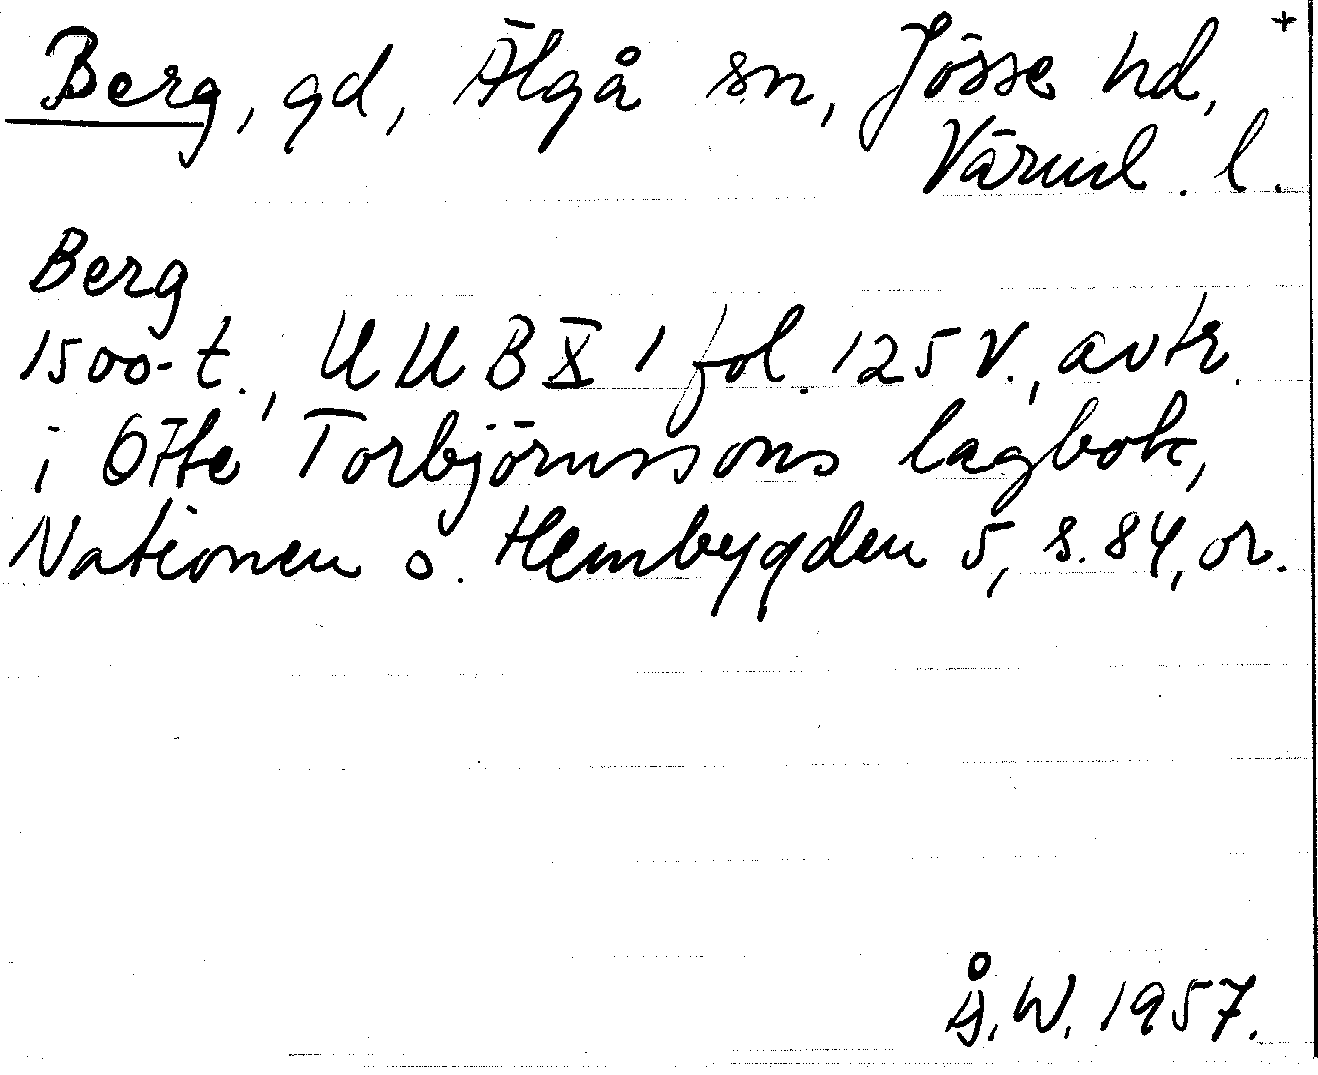 Berg, gd, Älgå sn, Jösse hd, +
Värml. l.
Berg
1500-t., UUB X 1 fol. 125 v., avtr.
i Otte Torbjörnssons lagbok,
Nationen o. Hembygden 5, s. 84, or.
Å. W. 1957.